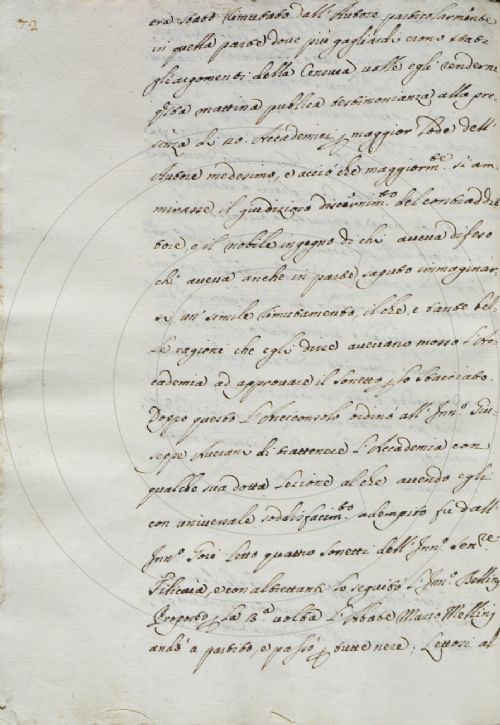 72
era stato rimutato dall'Autore particolarmente
in quella parte dove più gagliardi erono stati
gli argomenti della Censura volle egli renderne
q̃sta mattina publica testimonianza alla pre-
senza di Accademia, p maggior lode dell'
Autore medesimo, e acciò che maggiorm.te si am-
mirasse il giudizioso discernim.to del contraddit-
tore e il nobile ingegno di chi aveva difeso
chi aveva anche in parte saputo immaginar-
si un simile rimutamento, il che, e tante bel-
le ragioni che egli disse avevano mosso l'Ac-
cademia ad approvare il sonetto p lo stacciato.
Doppo questo l'Arciconsolo ordinò all'Inn.o Giu-
seppe Averani di trattenere l'Accademia con
qualche sua dotta lezione al che avendo egli
con universale soddisfacim.to adempito fù dall'
Inn.o Gori letto quattro sonetti dell'Inn.o Sen.re
Filicaia, e con altrettanti lo seguitò l'Inn.o Bellini
Proposto p la 13.a volta l'Abate Mario Mellini
andò a partito, e passò p tutte nere; Lettosi al